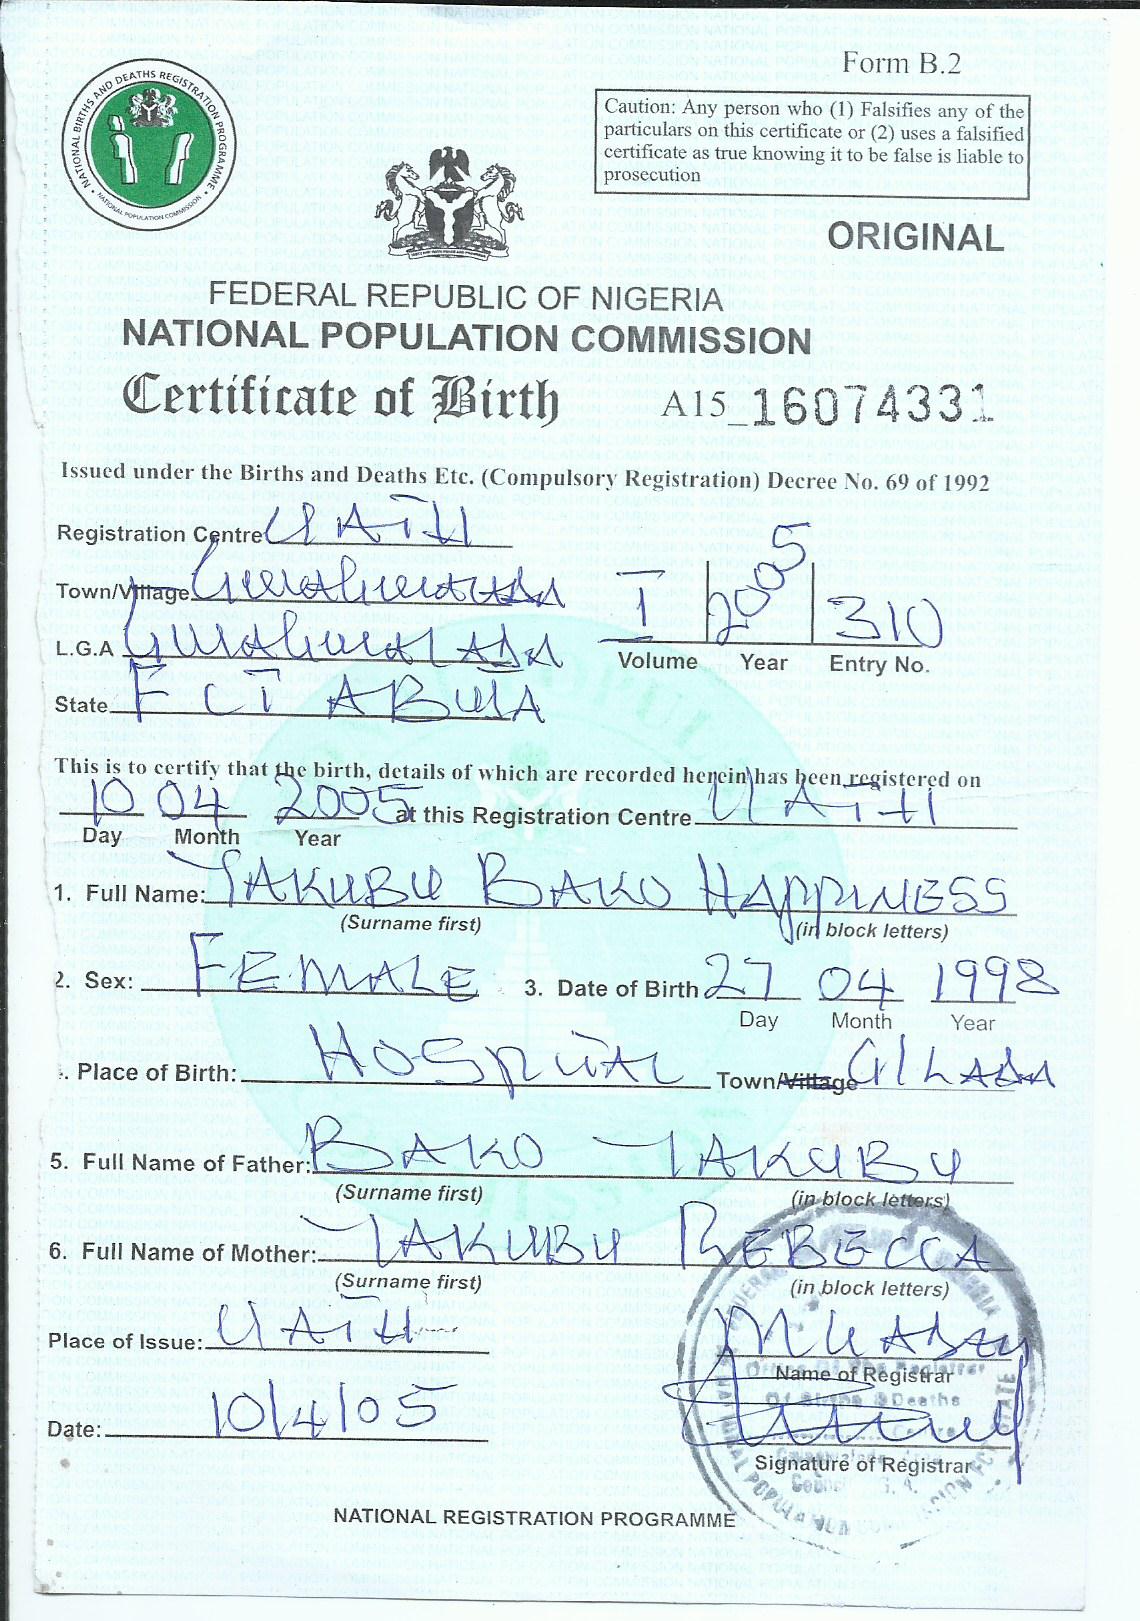 Form B.2
NATIONAL BIRTHS AND DEATHS REGISTRATION PROGRAMME
NATIONAL POPULATION COMMISSION
Caution: Any person who (1) Falsifies any of the
particulars on this certificate or (2) uses a falsified
certificate as true knowing it to be false is liable to
prosecution
ORIGINAL
FEDERAL REPUBLIC OF NIGERIA
NATIONAL POPULATION COMMISSION
Certificate of Birth A15_16074331
Issued under the Births and Deaths Etc. (Compulsory Registration) Decree No. 69 of 1992
Registration Centre UATH
Town/Village Gwagwalada
L.G.A Gwagwalada
I 2005 310
Volume Year Entry No.
State FCT ABUJA
This is to certify that the birth, details of which are recorded herein has been registered on
10 04 2005 at this Registration Centre UATH
Day Month Year
1. Full Name: YAKUBU BAKO HAPPINESS
(Surname first) (in block letters)
2. Sex: FEMALE 3. Date of Birth 27 04 1998
Day Month Year
. Place of Birth: HOSPITAL Town/Village
5. Full Name of Father: BAKO YAKUBU
(Surname first) (in block letters)
6. Full Name of Mother: YAKUBU REBECCA
(Surname first) (in block letters)
Place of Issue: UATH
Name of Registrar
Date: 10/4/05
Signature of Registrar
NATIONAL REGISTRATION PROGRAMME